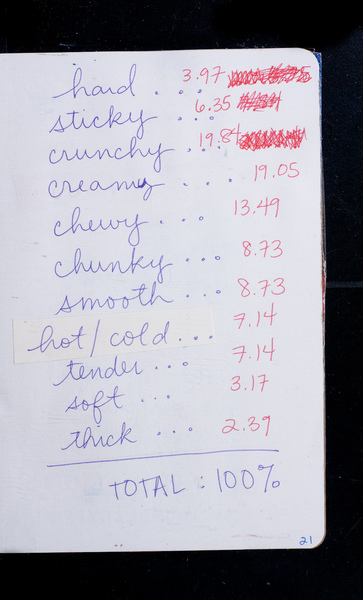 hard ... 3.97
sticky ... 6.35
crunchy ... 19.84
creamy ... 19.05
chewy ... 13.49
chunky ... 8.73
smooth ... 8.73
hot/cold ... 7.14
tender ... 7.14
soft ... 3.17
thick ... 2.39
TOTAL : 100%
21